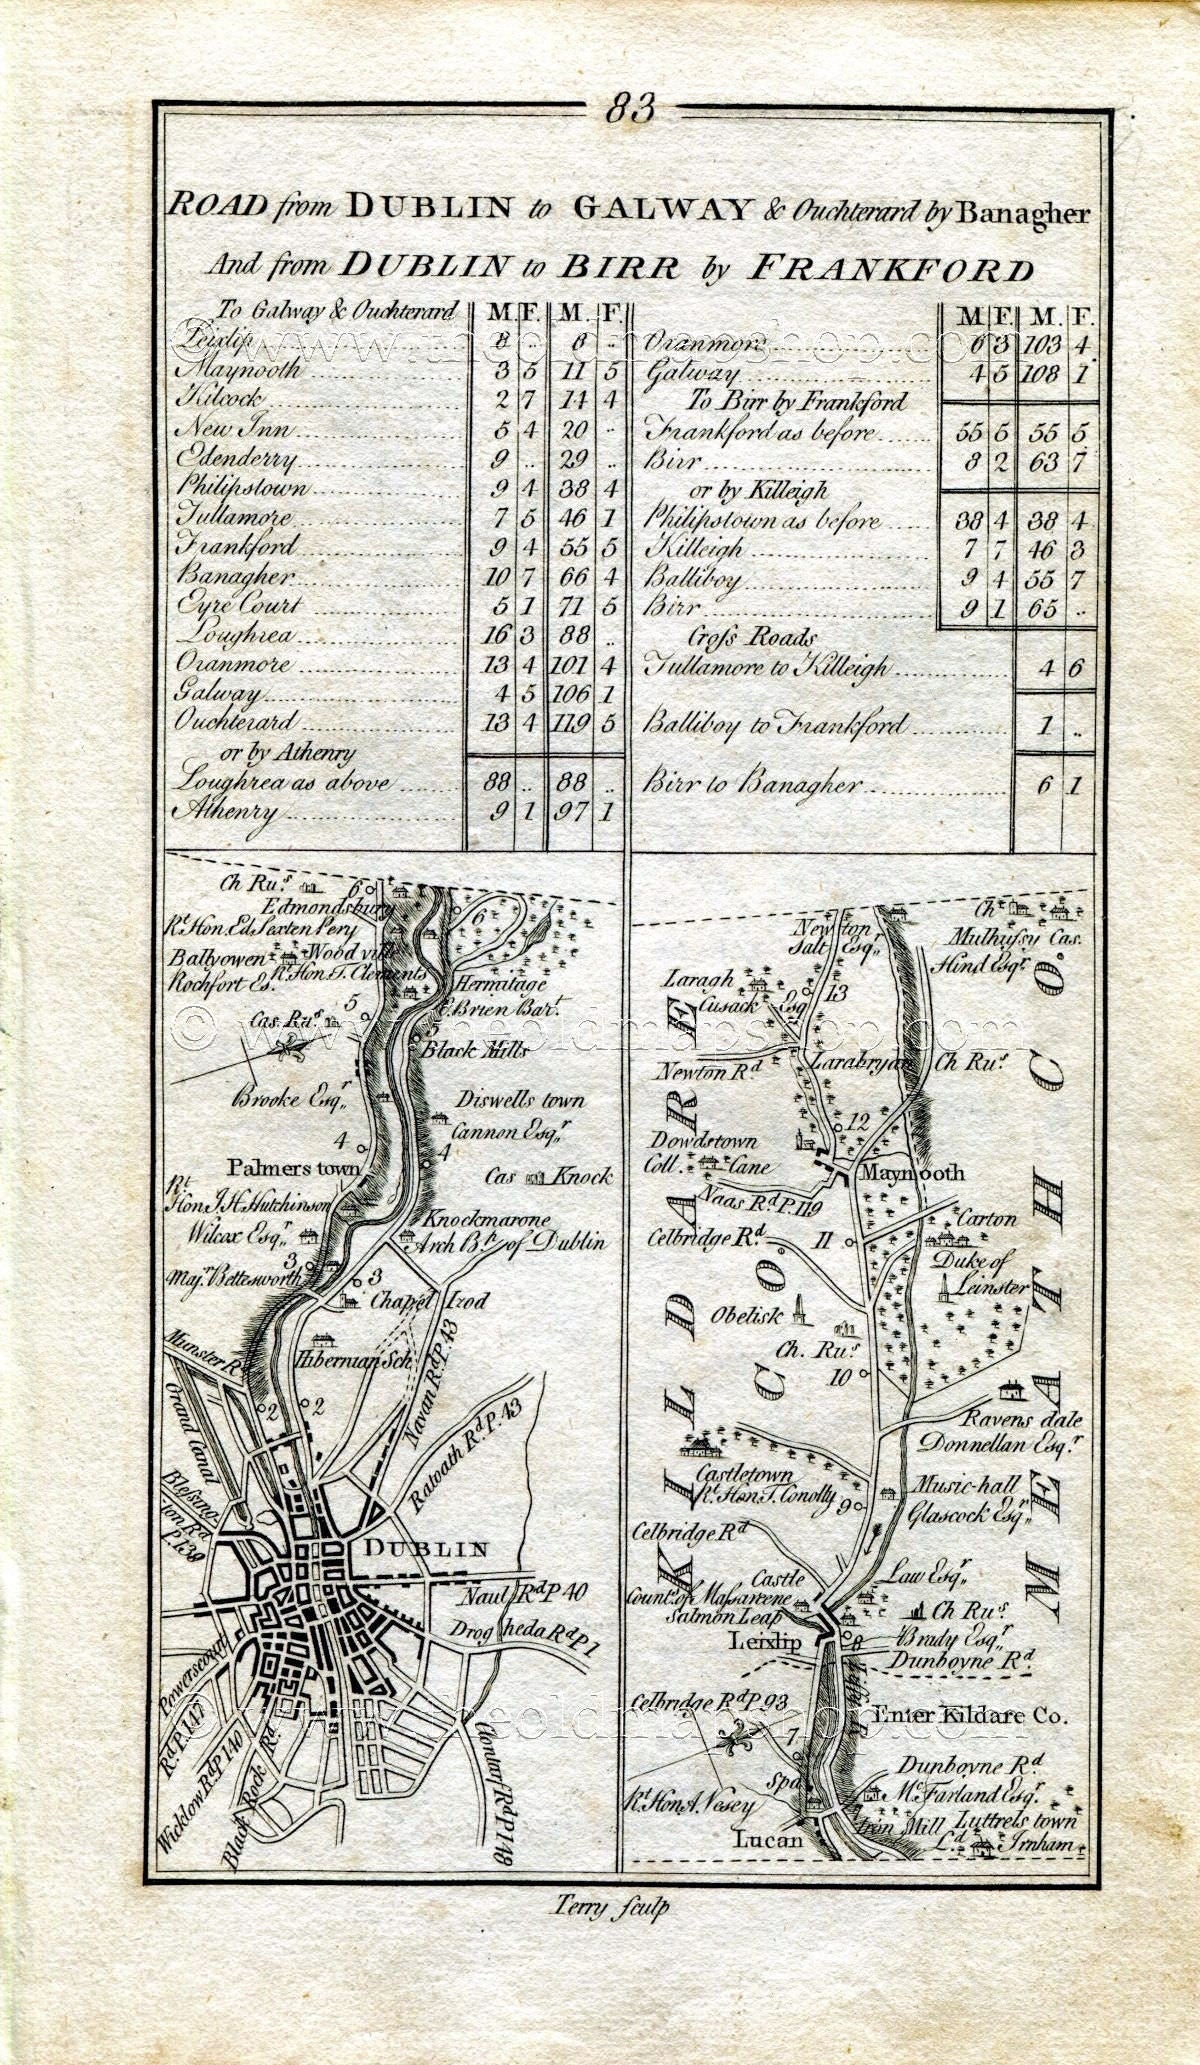 83
ROAD from DUBLIN to GALWAY & Ouchterard by Banagher
And from DUBLIN to BIRR by FRANKFORD
To Galway & Ouchterard M. F. M. F.
Leixlip 8 .. 8 ..
Maynooth 3 5 11 5
Kilcock 2 7 14 4
New Inn 5 4 20 ..
Edenderry 9 .. 29 ..
Philipstown 9 4 38 4
Tullamore 7 5 46 1
Frankford 9 4 55 5
Banagher 10 7 66 4
Eyre Court 5 1 71 5
Loughrea 16 3 88 ..
Oranmore 13 4 101 4
Galway 4 5 106 1
Ouchterard 13 4 119 5
or by Athenry
Loughrea as above 88 .. 88 ..
Athenry 9 1 97 1
M F. M. F.
Oranmore 6 3 103 4
Galway 4 5 108 1
To Birr by Frankford
Frankford as before 55 5 55 5
Birr 8 2 63 7
or by Killeigh
Philipstown as before 38 4 38 4
Killeigh 7 7 46 3
Balliboy 9 4 55 7
Birr 9 1 65 ..
Cross Roads
Tullamore to Killeigh 4 6
Balliboy to Frankford 1 ..
Birr to Banagher 6 1
Ch Rus. 6
Edmondsbury
Rt. Hon. Ed Sexten Pery 6
Ballyowen Wood vill
Rt Hon. T. Clements
Rochfort Es. Hermitage
5 O Brien Bart.
Cas. Rus. 5
Black Mills
Brooke Esqr. Diswells town
Cannon Esqr.
4 4
Palmers town Cas Knock
Rt Hon J. H. Hutchinson
Knockmarone
Wilcox Esqr. Arch Bp. of Dublin
3 3
Majr. Bettesworth
Chapel Izod
Munster Rd
Hibernian Sch.
Navan Rd P. 43
2 2
Grand Canal
Ratoath Rd P. 43
Blessington Rd P. 138
DUBLIN
Naul Rd P 40
Drogheda Rd P 1
Powerscourt Rd P. 147
Wicklow Rd P 140
Black Rock Rd
Clontarf Rd P 148
Newton Ch
Salt Esqr. Mulhussy Cas.
Hind Esqr.
Laragh
Cusack Esq 13
Newton Rd Larabryan Ch Rus.
12
Dowdstown
Coll. Cane Maynooth
Naas Rd P. 119
Carton
Celbridge Rd. 11
Duke of Leinster
Obelisk
Ch. Rus.
10
Ravens dale
Donnellan Esqr.
Castletown
Rt. Hon. T. Conolly 9
Music-hall
Glascock Esqr.
Celbridge Rd
Castle Law Esqr.
Count. of Massareene Ch Rus.
Salmon Leap
Leixlip 8 Brady Esqr
Dunboyne Rd
Celbridge Rd P. 93
Liffey R
Enter Kildare Co.
7
Spa Dunboyne Rd
Mc Farland Esqr.
Rt. Hon A. Vesey
Iron Mill Luttrels town
Lucan Ld. Irnham
KILDARE CO.
MEATH CO.
Terry sculp
© www.theoldmapshop.com
© www.theoldmapshop.com
© www.theoldmapshop.com